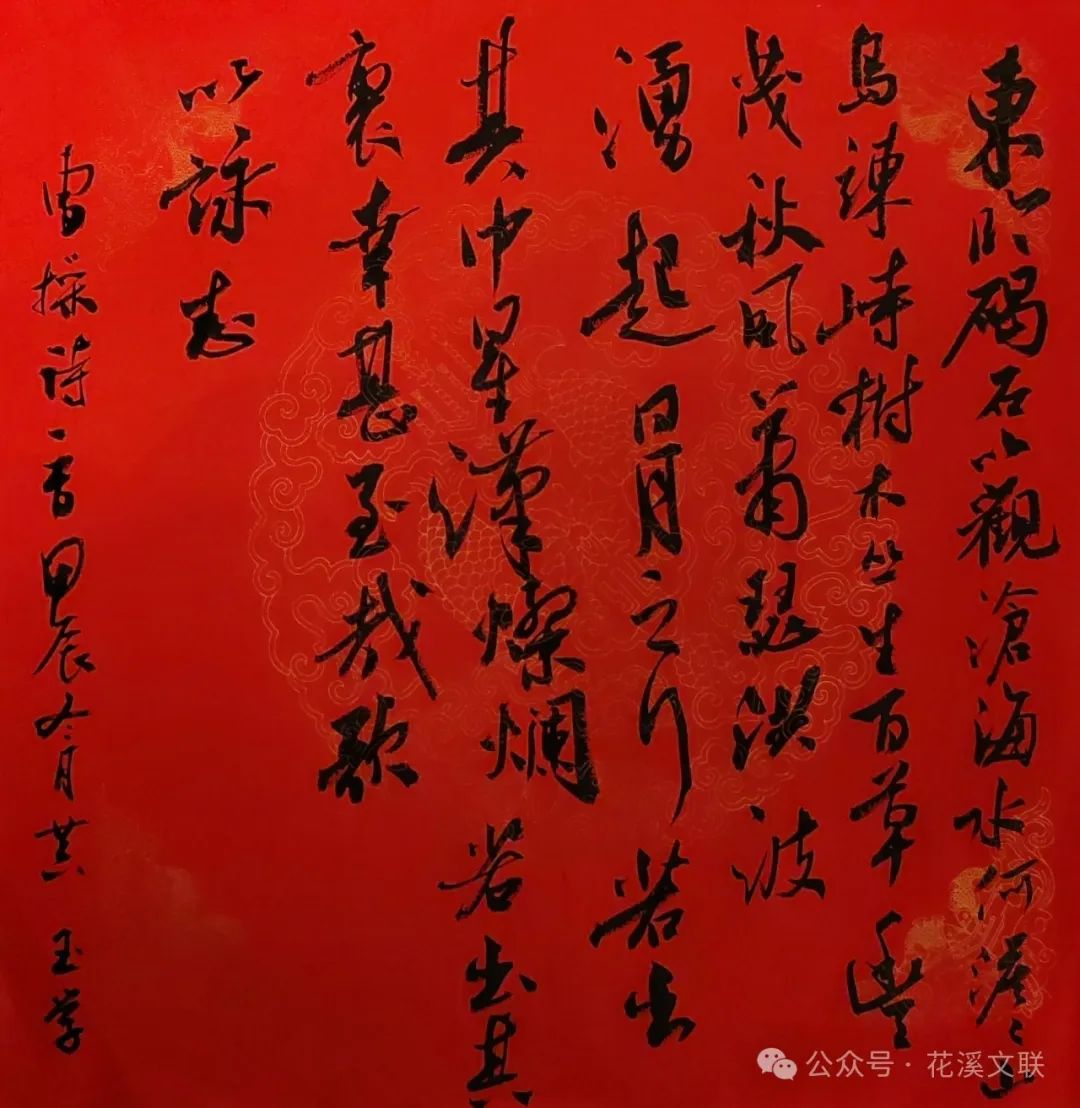 東临碣石以觀滄海水何澹々山
島竦峙樹木丛生百草豐
茂秋風蕭瑟洪波
湧起日月之行若出
其中星漢燦爛若出其
裏幸甚至哉歌
以詠志
曹操詩一首甲辰冬月玉学
公众号·花溪文联